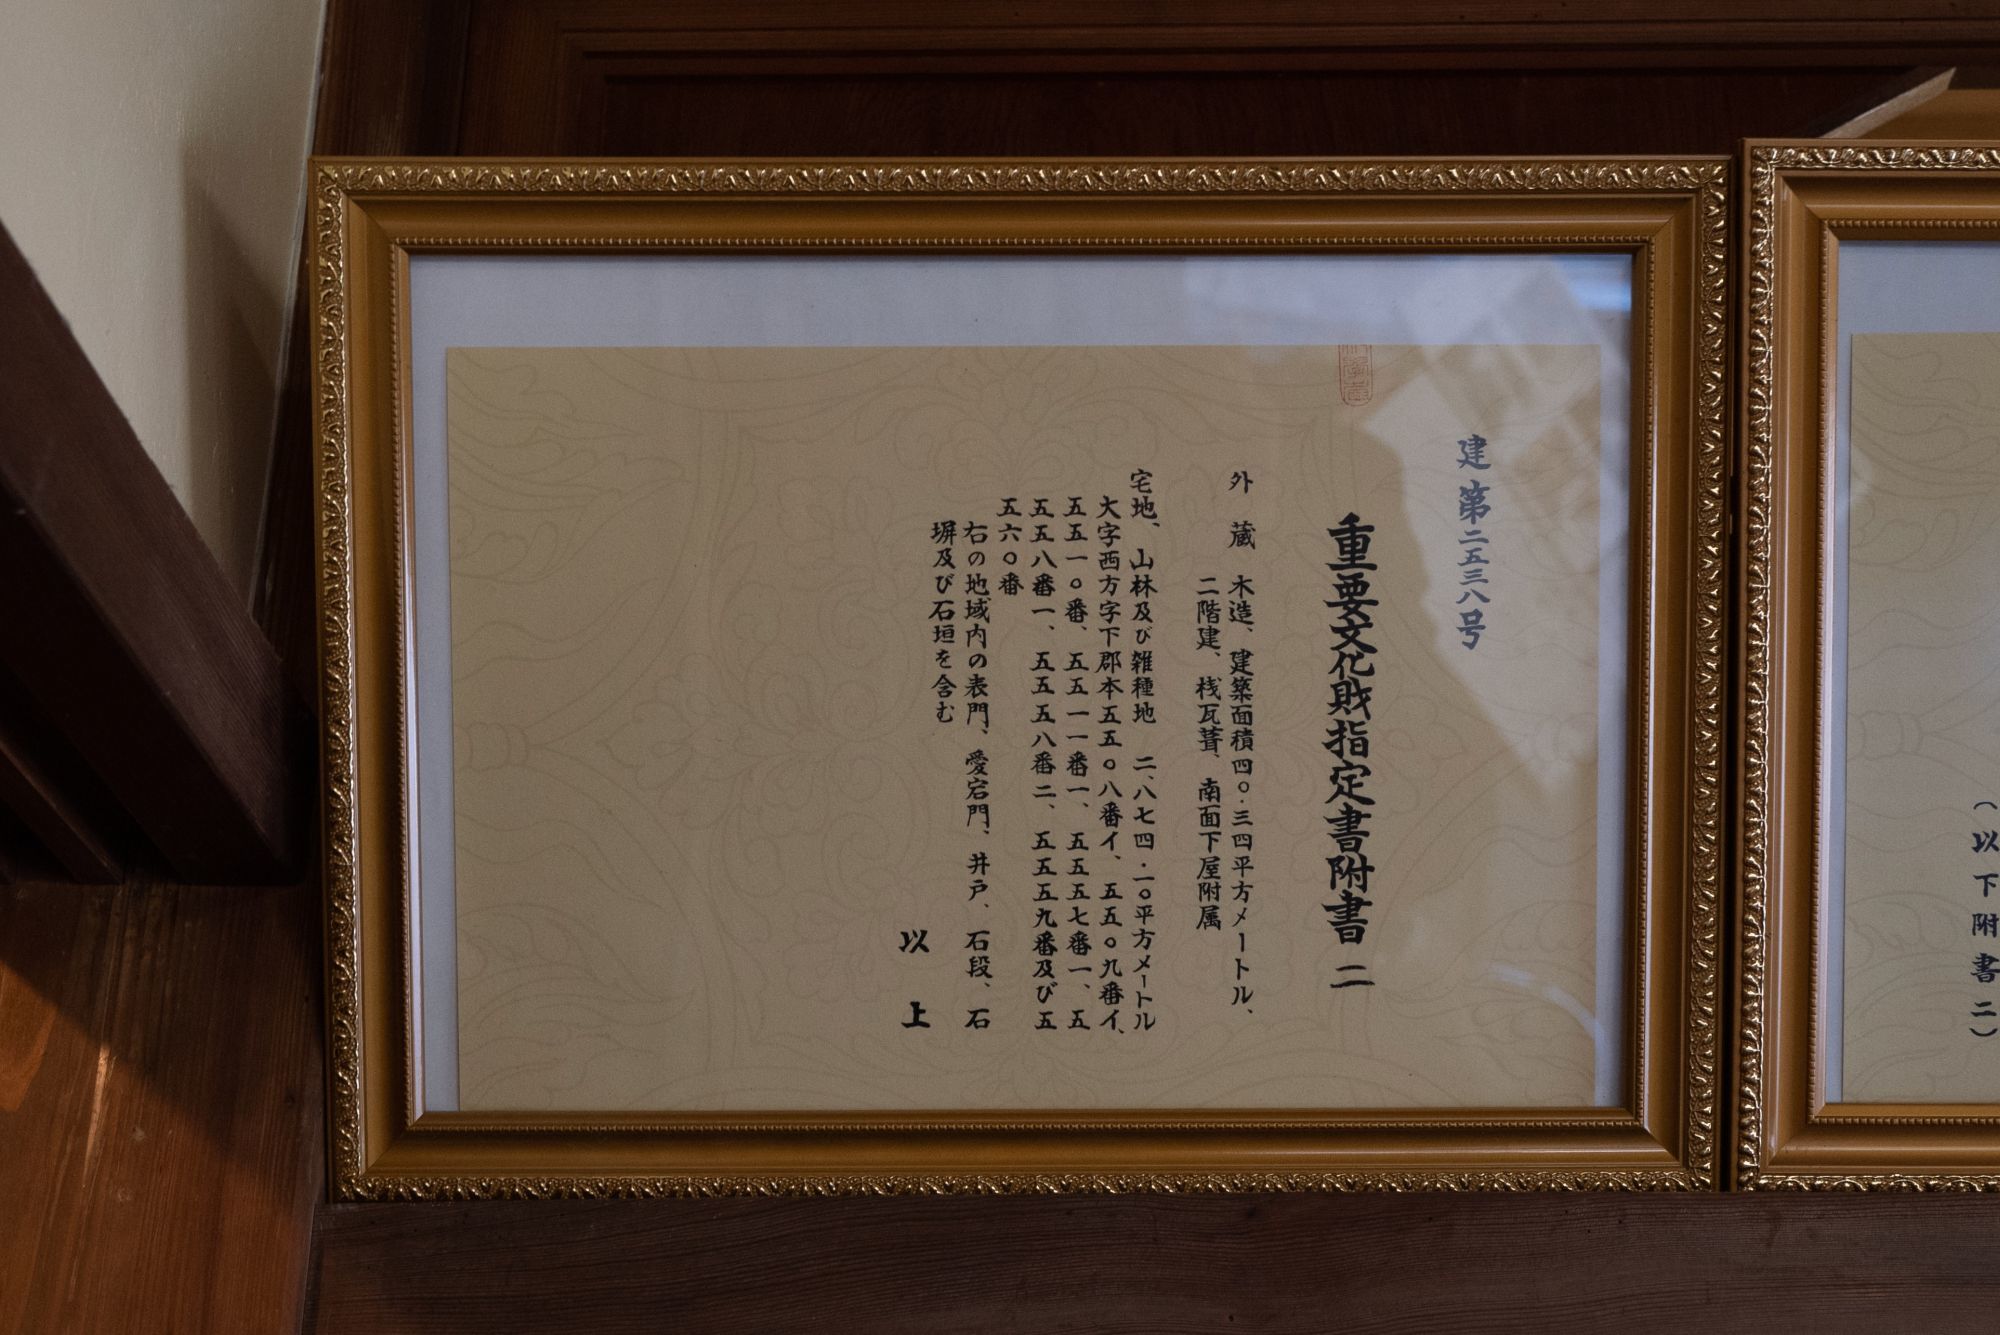 建第二五三八号
重要文化財指定書附書 二
外 蔵 木造、建築面積四〇・三四平方メートル、
二階建、桟瓦葺、南面下屋附属
宅地、山林及び雑種地 二、八七四・一〇平方メートル
大字西方字下郡本五五〇八番イ、五五〇九番イ、
五五一〇番、五五一一番一、五五五七番一、五
五五八番一、五五五八番二、五五五九番及び五
五六〇番
右の地域内の表門、愛宕門、井戸、石段、石
塀及び石垣を含む
以 上
(以下附書二)